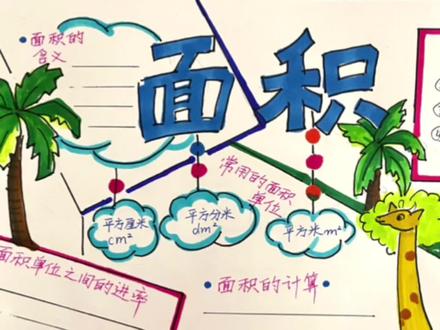 面积
面积的
含义
常用的面积
单位
平方厘米
cm²
平方分米
dm²
平方米 m²
面积单位之间的进率
面积的计算